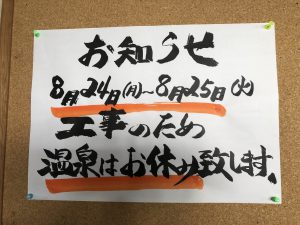 お知らせ
8月24日(月)～8月25日(火)
工事のため
温泉はお休み致します。